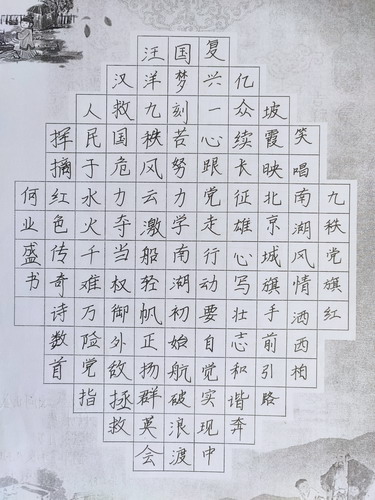 九秩党旗红
笑唱南湖风情洒西柏
坡霞映北京城旗手前引路
亿众续长征雄心写壮志和谐奔
复兴一心跟党走行动要自觉实现中
国梦刻苦努力学南湖初始航破浪渡
汪洋九秩风云激船轻帆正扬群英会
汉救国危力夺当权御外敌拯救
人民于水火千难万险党指
挥摘红色传奇诗数首
何业盛书